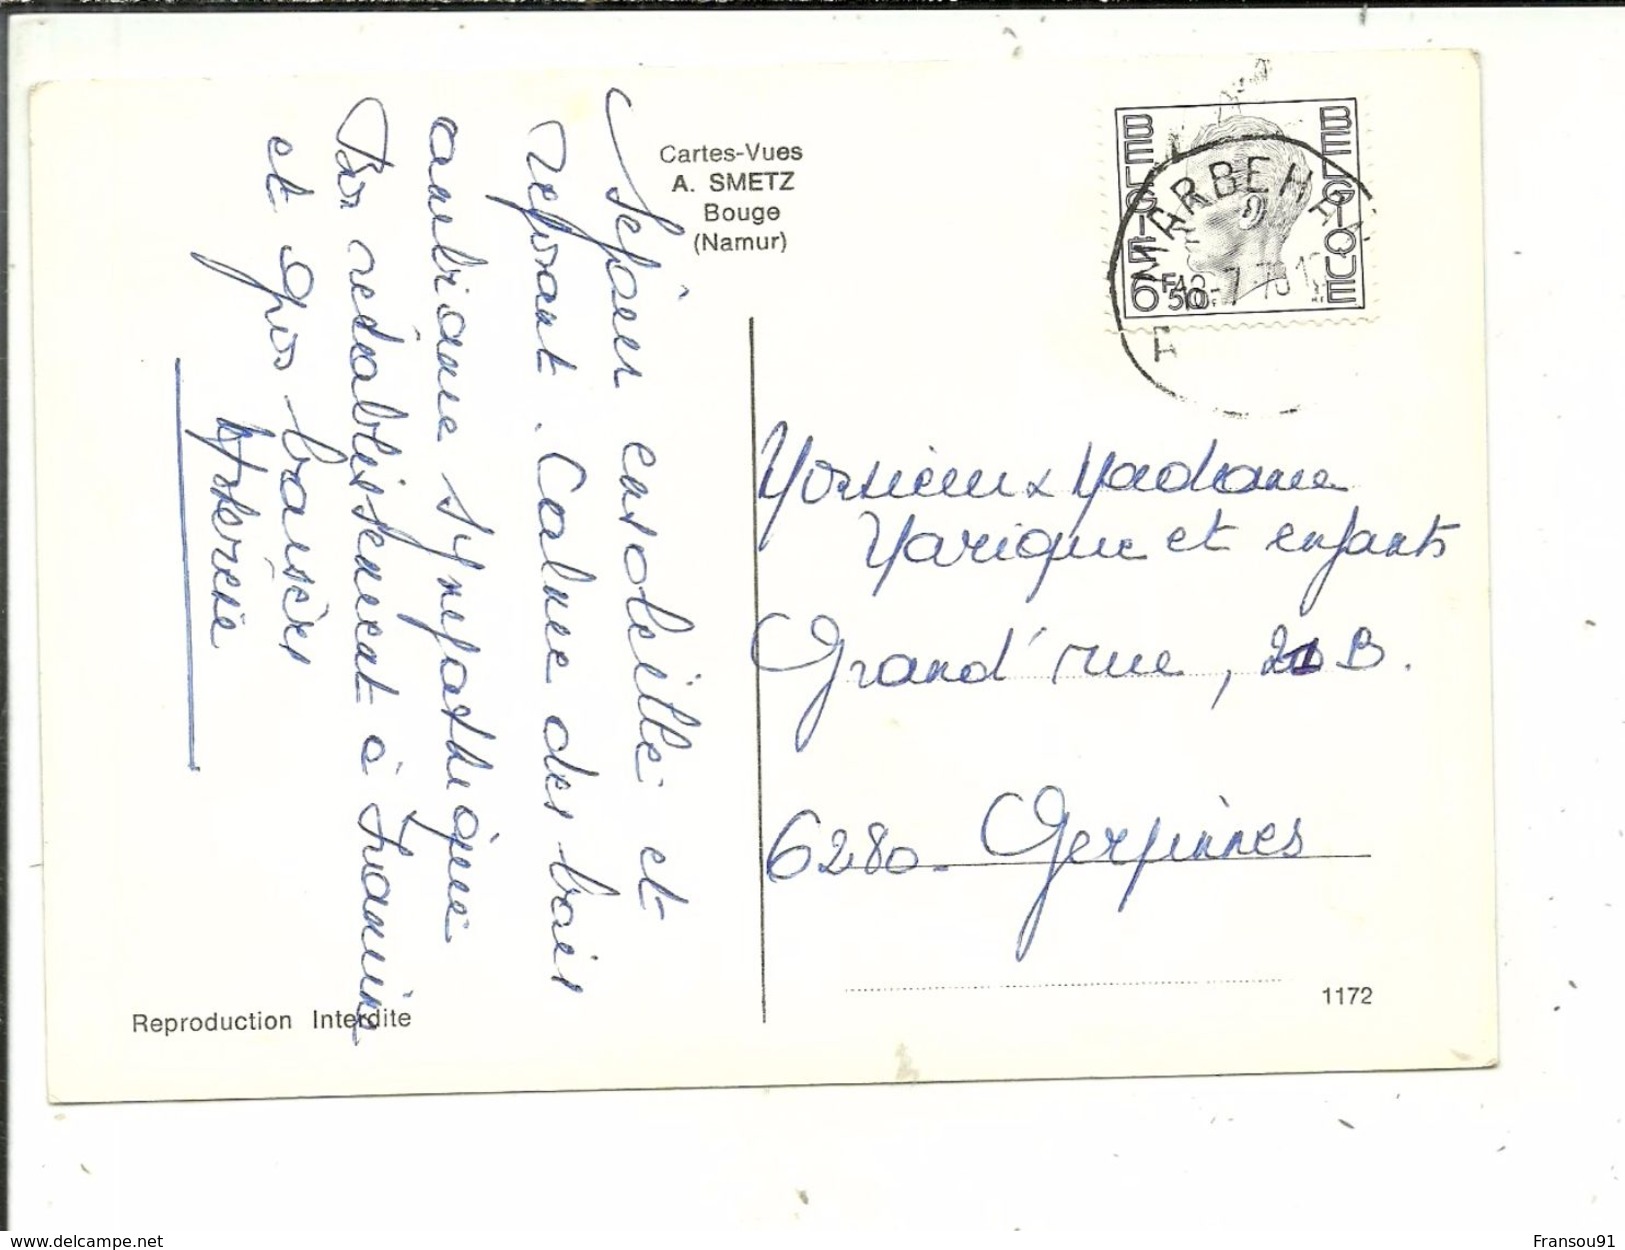 Séjour ensoleillé et
reposant. Calme des bois
ambiance sympathique
Bon rétablissement à Francine
et gros baisers
Cartes-Vues
A. SMETZ
Bouge
(Namur)
BELGIE BELGIQUE
6 F 50
MARBEHAN
Monsieur & Madame
Marique et enfants
Grand'rue, 21 B.
6280 - Gerpinnes
Reproduction Interdite
1172
www.delcampe.net
Fransou91